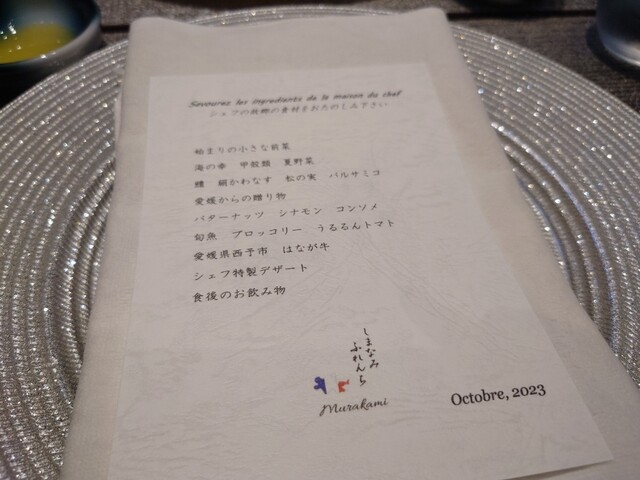 Savourez les ingredients de la maison du chef
シェフの故郷の食材をおたのしみ下さい
始まりの小さな前菜
海の幸　甲殻類　夏野菜
鱧　絹かわなす　松の実　バルサミコ
愛媛からの贈り物
バターナッツ　シナモン　コンソメ
旬魚　ブロッコリー　うるるんトマト
愛媛県西予市　はなが牛
シェフ特製デザート
食後のお飲み物
しまなみ
ふれんち
Murakami
Octobre, 2023